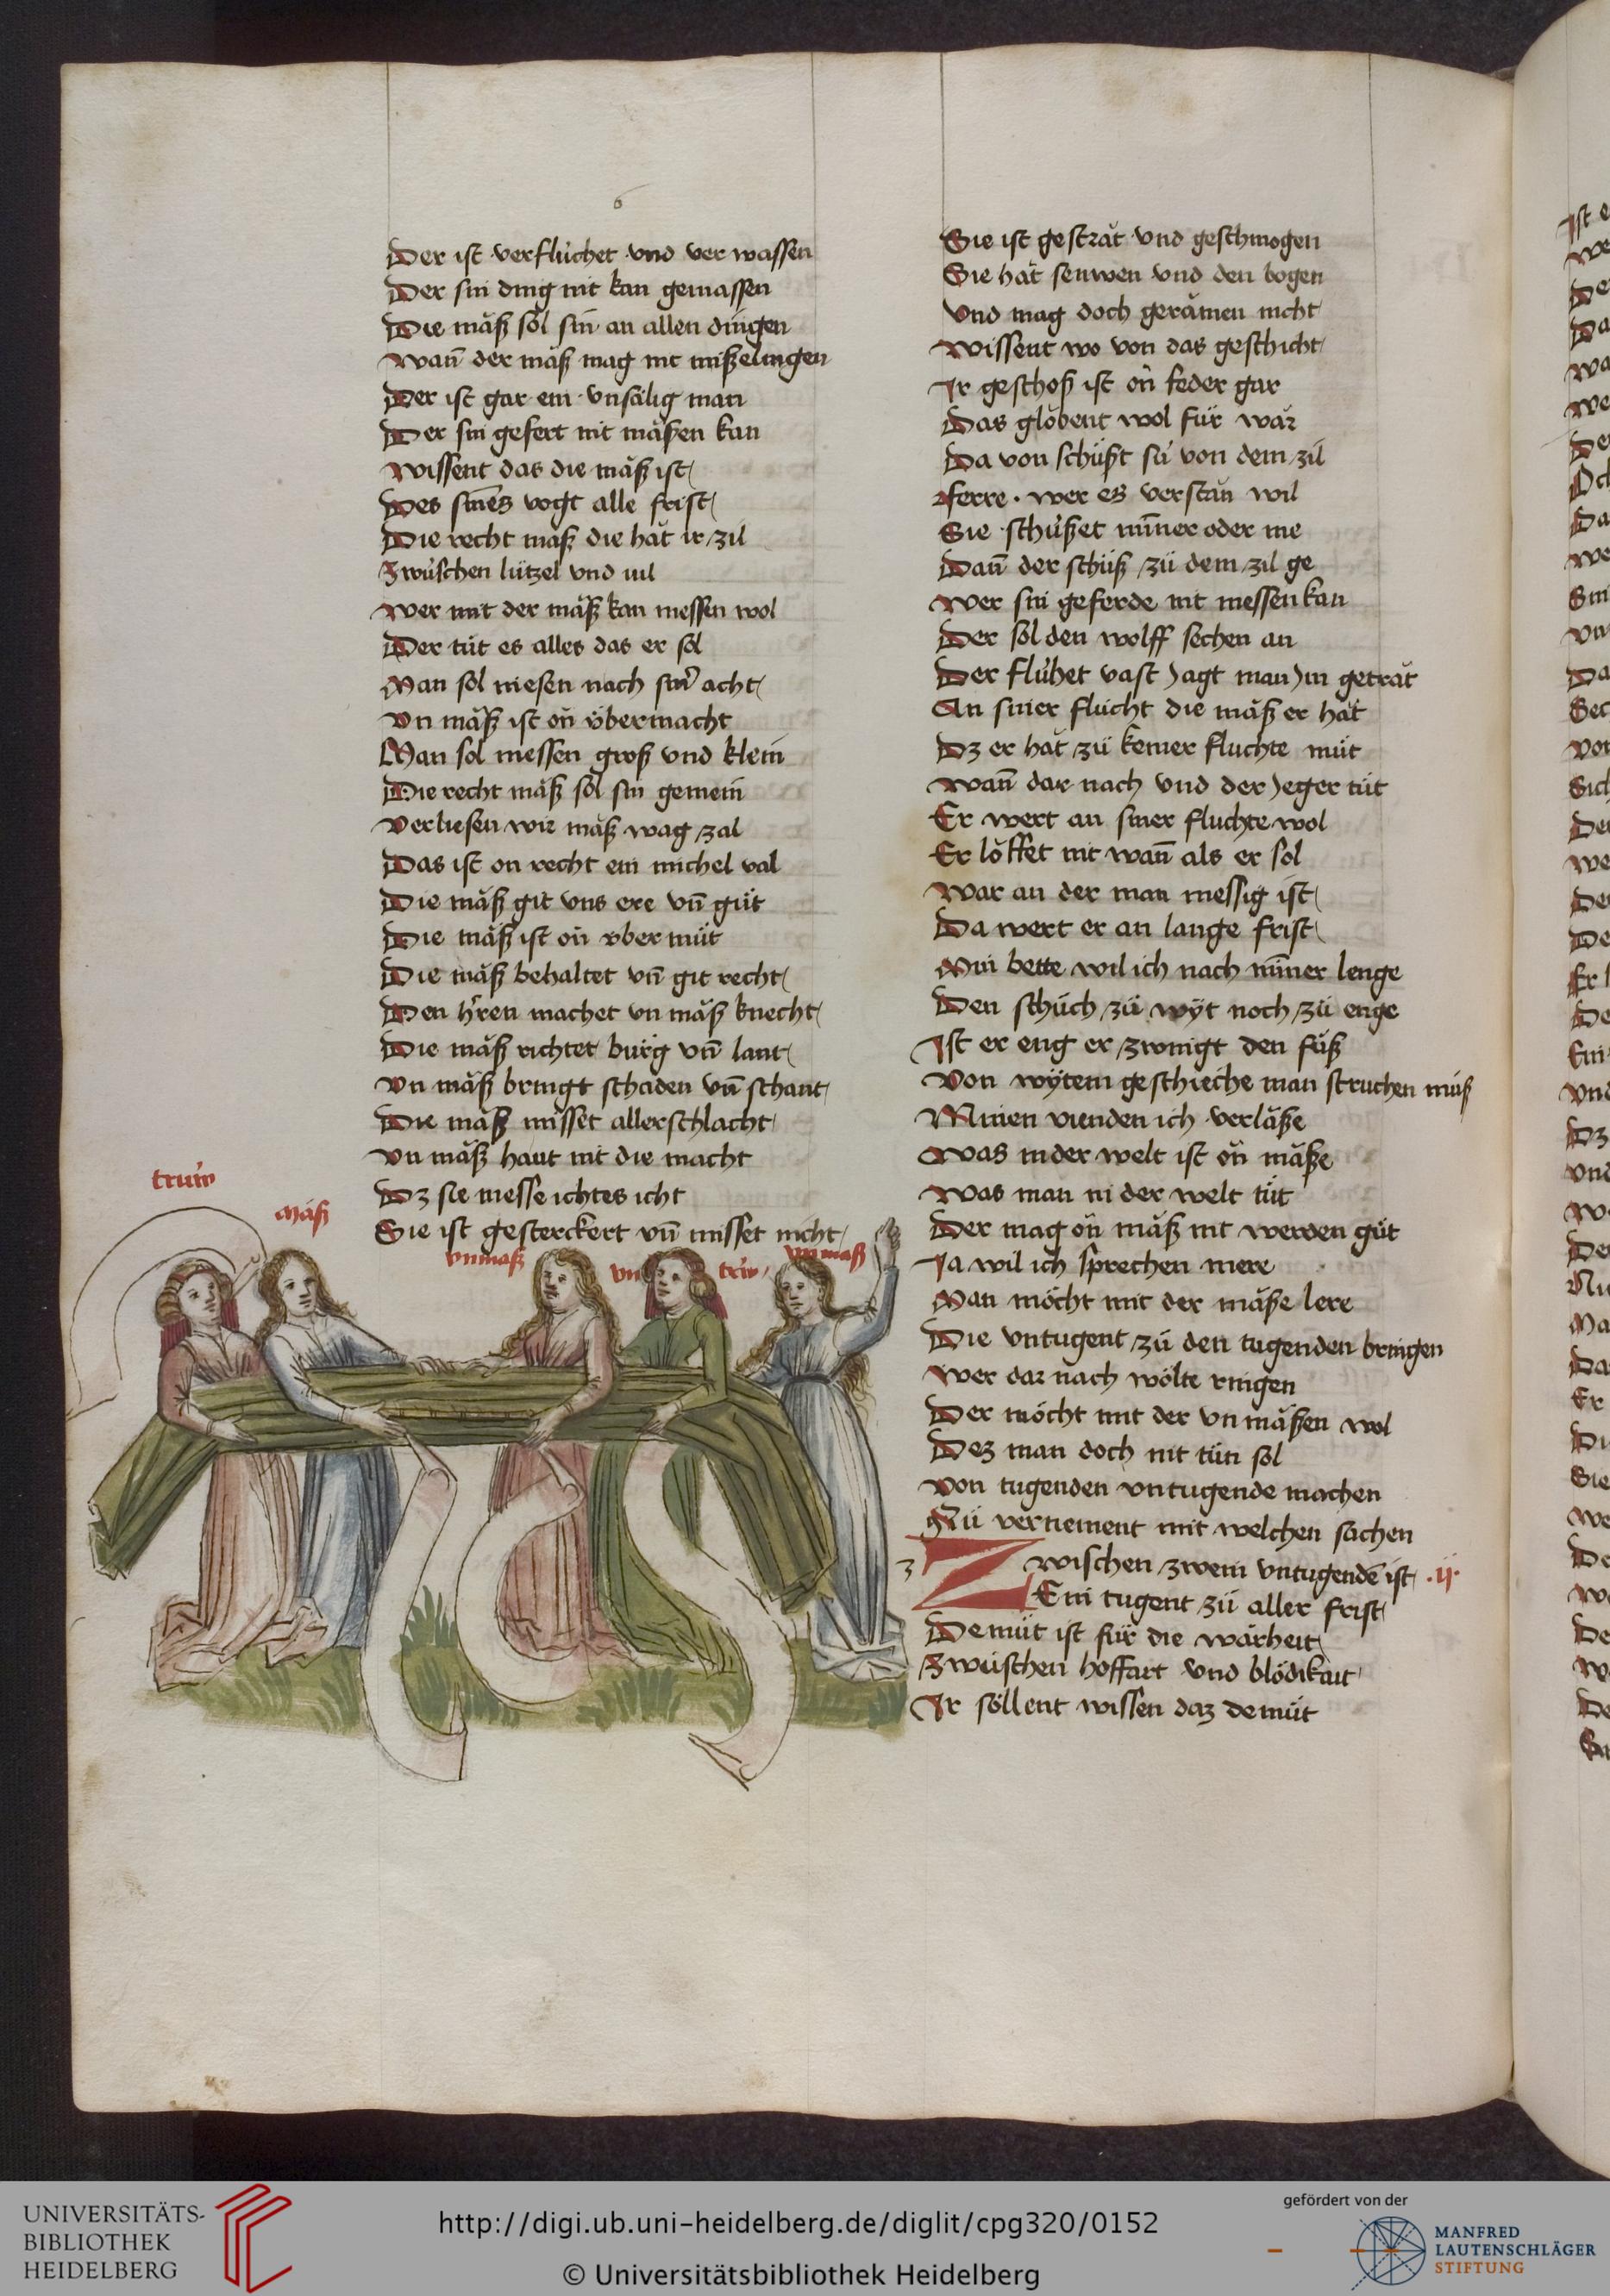 6
Der ist verflůchet vnd ver wassen
Der sin ding nit kan gemassen
Die mäß sol sin an allen dingen
Wann̄ der mäß mag nit mißelingen
Der ist gar ein vnsälig man
Der sin gefert nit mäßen kan
Wissent das die mäß ist
Des sines vogt alle frist
Die recht mäß die hät ir zil
Zwüschen lützel vnd uil
Wer mit der mäß kan messen wol
Der tüt es alles das er sol
Man sol niesen nach sin̕ acht
Vn mäß ist on̄ v̈bermacht
Man sol messen groß vnd klein
Die recht mäß sol sin gemein
Verliesen wir mäß wag zal
Das ist on recht ein michel val
Die mäß git vns ere vn̄ güt
Die mäß ist on̄ v̈ber müt
Die mäß behaltet vn̄ git recht
Den h̕ren machet vn mäß knecht
Die mäß richtet burg vn̄ lant
Vn mäß bringt schaden vn̄ schant
Die mäß misset allerschlacht
Vn mäß haut nit die macht
Dz sie messe ichtes icht
Sie ist gesterckert vn̄ misset nicht
trüw
Mäß
vnmaß
vn
trüw
vn maß
Sie ist gesträt vnd geschmogen
Sie hät senwen vnd den bogen
Vnd mag doch gerämen nicht
Wissent wo von das geschicht
Ir geschoß ist on̄ feder gar
Das glöbent wol für wär
Da von schüßt sü von dem zil
Ferre . wer es verstän wil
Sie schüßet min̄er oder me
Dann̄ der schüß zü dem zil ge
Wer sin geferde nit messen kan
Der sol den wolff sechen an
Der flühet vast Jagt man Jn geträt
An siner flucht die mäß er hät
Dz er hät zü keiner fluchte müt
Wann̄ dar nach vnd der Jeger tüt
Er wert an siner fluchte wol
Er löffet nit wann̄ als er sol
War an der man messig ist
Da wert er an lange frist
Min bette wil ich nach min̄er lenge
Den schüch zü wÿt noch zü enge
Ist er eng er zwingt den füß
Von wÿtem geschieche man struchen müß
Minen vienden ich verläße
Was in der welt ist on̄ mäße
Was man in der welt tüt
Der mag on̄ mäß nit werden güt
Ja wil ich sprechen mere
Man möcht mit der mäße lere
Die vntugent zü den tugenden bringen
Wer dar nach wölte ringen
Der möcht mit der vn mäßen wol
Dez man doch nit tün sol
Von tugenden vntugende machen
Nü vernement mit welchen sachen
Zwischen zwein vntugendē ist .ii.
Ein tugent zü aller frist
Demüt ist für die wärheit
Zwüschen hoffart vnd blödikait
Ir söllent wissen daz demüt
UNIVERSITÄTS-
BIBLIOTHEK
HEIDELBERG
http://digi.ub.uni-heidelberg.de/diglit/cpg320/0152
© Universitätsbibliothek Heidelberg
gefördert von der
MANFRED
LAUTENSCHLÄGER
STIFTUNG